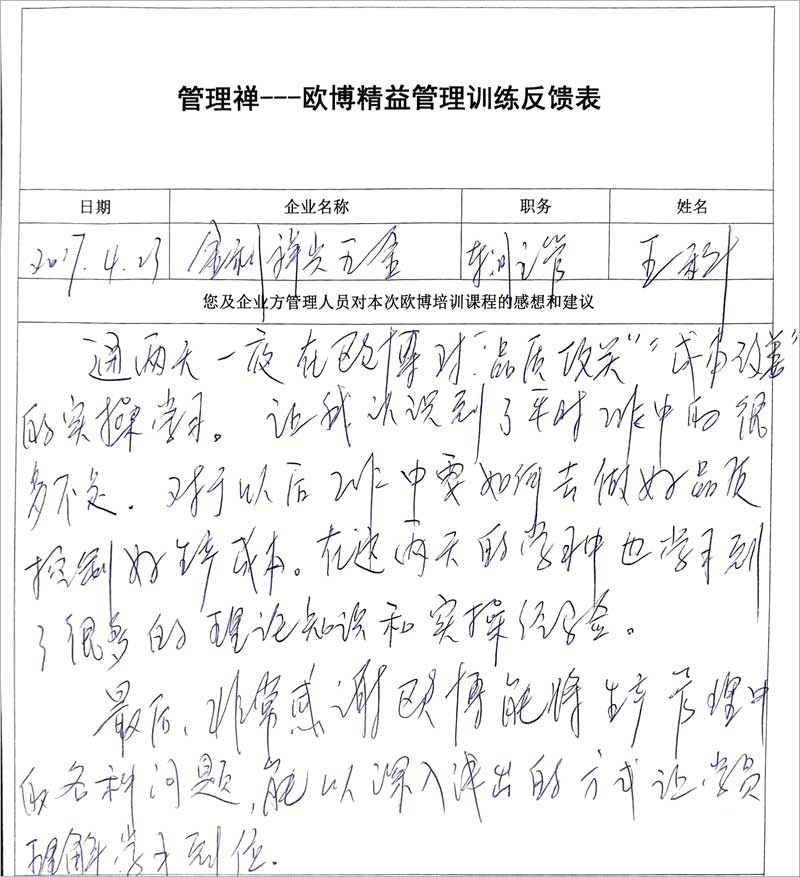 管理禅---欧博精益管理训练反馈表
日期 企业名称 职务 姓名
2017.4.23 金利祥实五金 主管 王
您及企业方管理人员对本次欧博培训课程的感想和建议
通两天一夜在欧博对“品质攻关”“成本改善”
的实操学习。让我认识到了平时工作中的很
多不足。对于以后工作中要如何去做好品质
控制好生产成本。在这两天的学习中也学习到
了很多的理论知识和实操经验。
最后,非常感谢欧博能将生产管理中
的各种问题,能以深入浅出的方式让学员
理解学习到位.